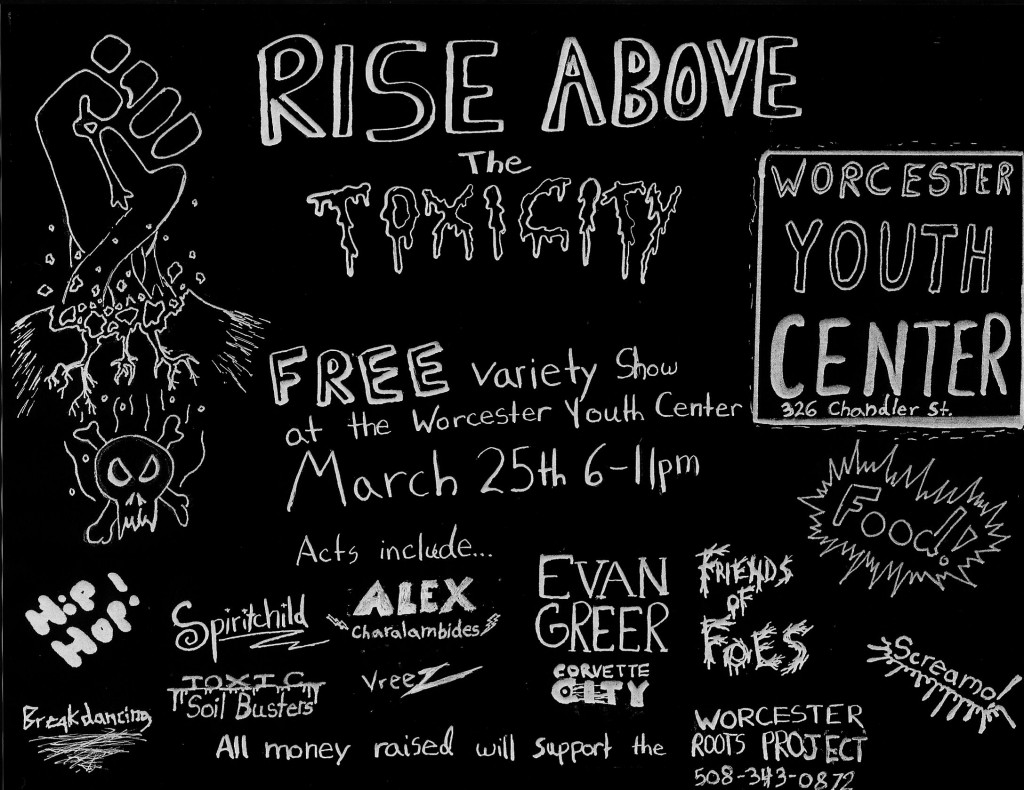 RISE ABOVE
The
TOXICITY
WORCESTER
YOUTH
CENTER
326 Chandler St.
FREE Variety Show
at the Worcester Youth Center
March 25th 6-11pm
Food!
Acts include...
Hip
Hop!
Spiritchild
ALEX
Charalambides
EVAN
GREER
FRIENDS
OF
FOES
Screamo!
Breakdancing
TOXIC
Soil Busters
VreeZ
CORVETTE
CITY
All money raised will support the
WORCESTER
ROOTS PROJECT
508-343-0872